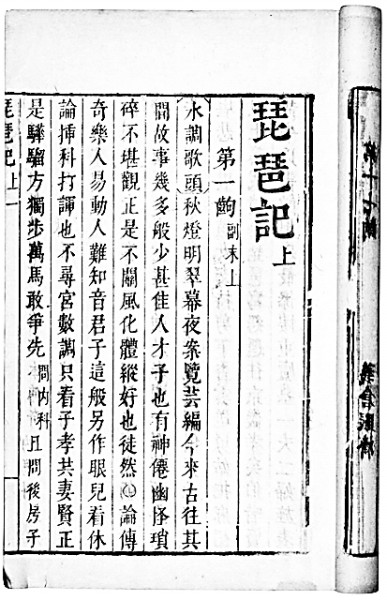 琵琶記上
第一齣 副末上
水調歌頭 秋燈明翠幕夜案覽芸編今來古往其
間故事幾多般少甚佳人才子也有神僊幽怪瑣
碎不堪觀正是不關風化體縱好也徒然 論傳
奇樂人易動人難知音君子這般另作眼兒看休
論揷科打諢也不尋宮數調只看子孝共妻賢正
是驊騮方獨步萬馬敢爭先 問內科 且問後房子
琵琶記上 一